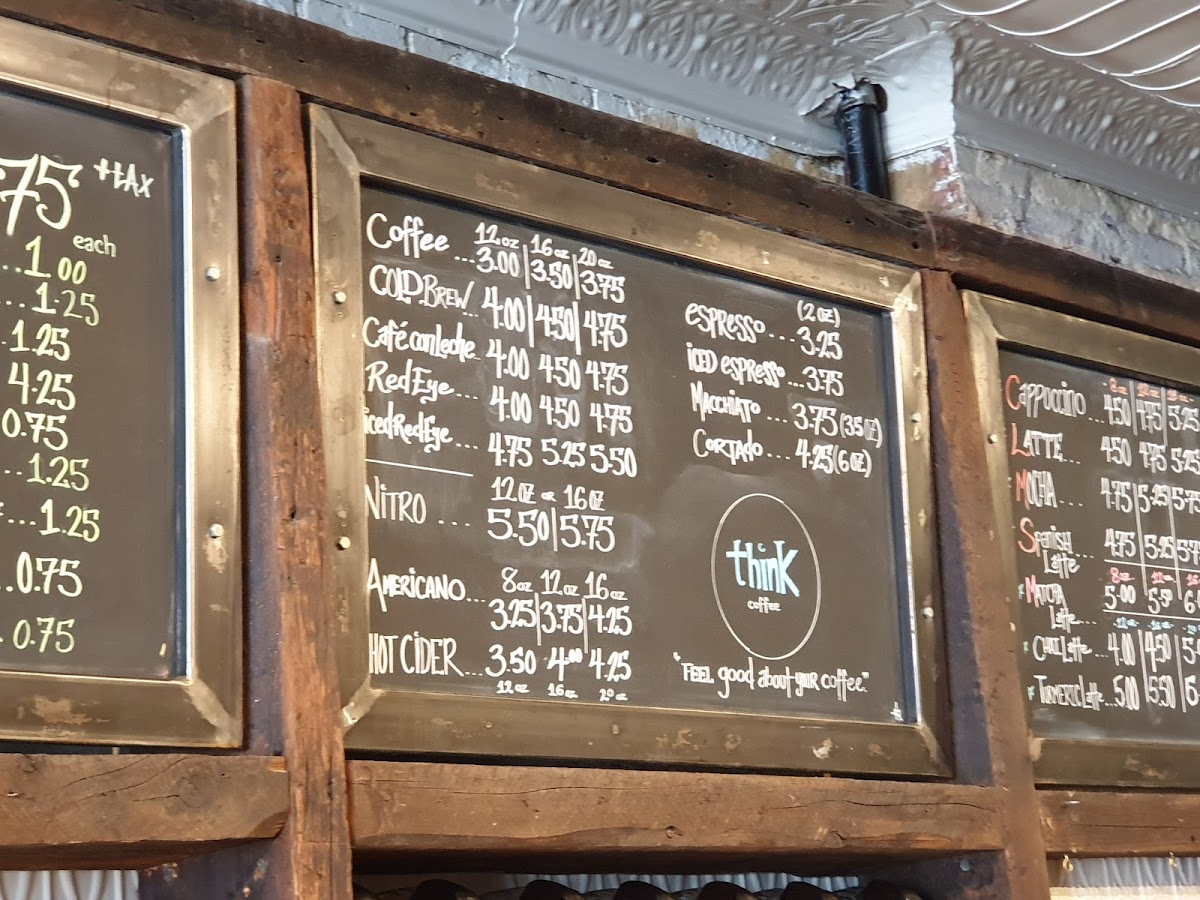 75 +tAx
each
...1.00
...1.25
..1.25
4.25
0.75
...1.25
...1.25
.0.75
.0.75
12 oz 16 oz 20 oz
Coffee ...3.00 3.50 3.75
COLD BREW.. 4.00 4.50 4.75
Café con leche. 4.00 4.50 4.75
Red Eye.... 4.00 4.50 4.75
iced Red Eye... 4.75 5.25 5.50
12 oz or 16 oz
NITRO .... 5.50 5.75
8 oz 12 oz 16 oz
AMERICANO... 3.25 3.75 4.25
HOT CIDER... 3.50 4.00 4.25
12 oz 16 oz 20 oz
(2 oz)
espresso....3.25
iced espresso...3.75
Macchiato....3.75 (3.5 oz)
Cortado....4.25 (6 oz)
think
coffee
"FEEL good about your coffee."
8 oz
Cappuccino.. 4.50 4.75 5.25
LATTE... 4.50 4.75 5.25
MOCHA ... 4.75 5.25 5.75
Spanish
Latte .. 4.75 5.25 5.7
8 oz 12 oz
MATCHA 5.00 5.50 6
Latte..
12 oz 16 oz
CHAI Latte... 4.00 4.50 5
TURMERIC Latte...5.00 5.50 6